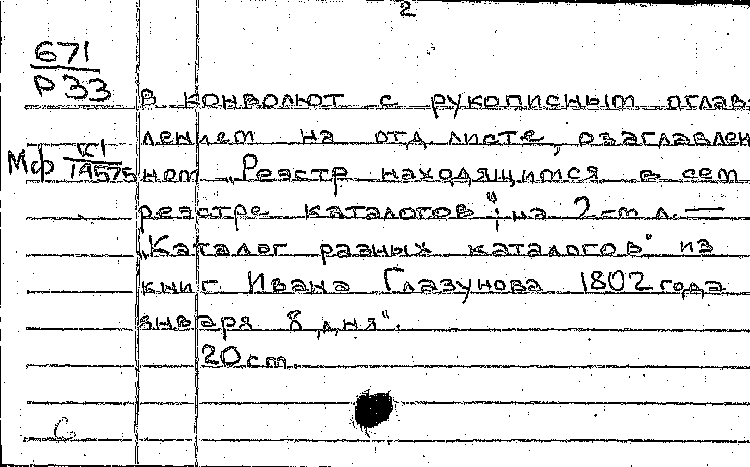 2
671
Р33
В конволют с рукописным оглав-
лением на отд. листе, озаглавлен-
Мф К1
19575
ном „Реэстр находящимся в сем
реэстре каталогов"; на 2-м л. —
„Каталог разных каталогов" из
книг Ивана Глазунова 1802 года
января 8 дня".
20 см.
С